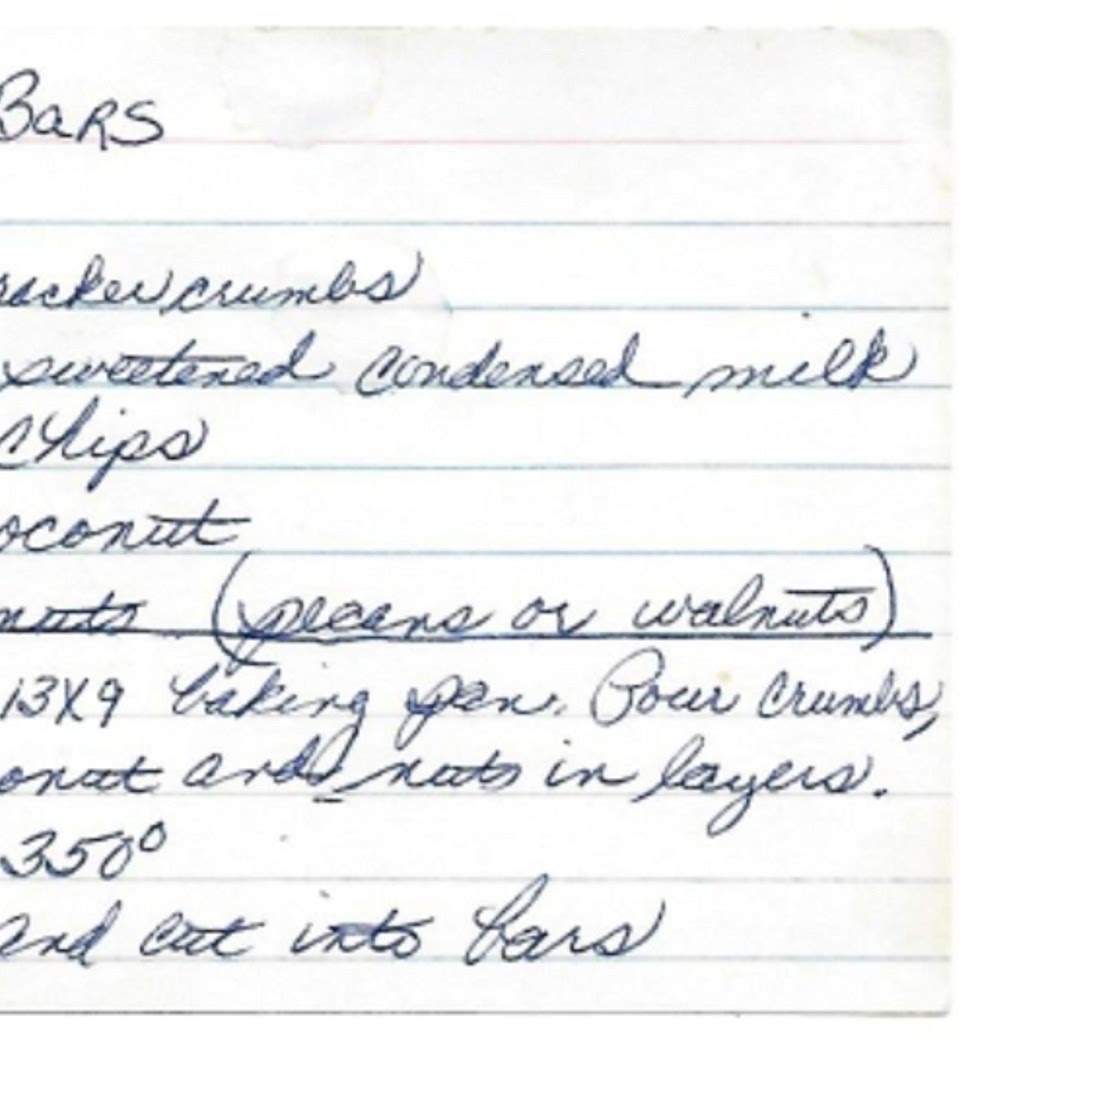 Bars
racker crumbs
sweetened condensed milk
Chips
oconut
nuts (pecans or walnuts)
13X9 baking pan. Pour crumbs,
onut and nuts in layers.
350°
and cut into bars